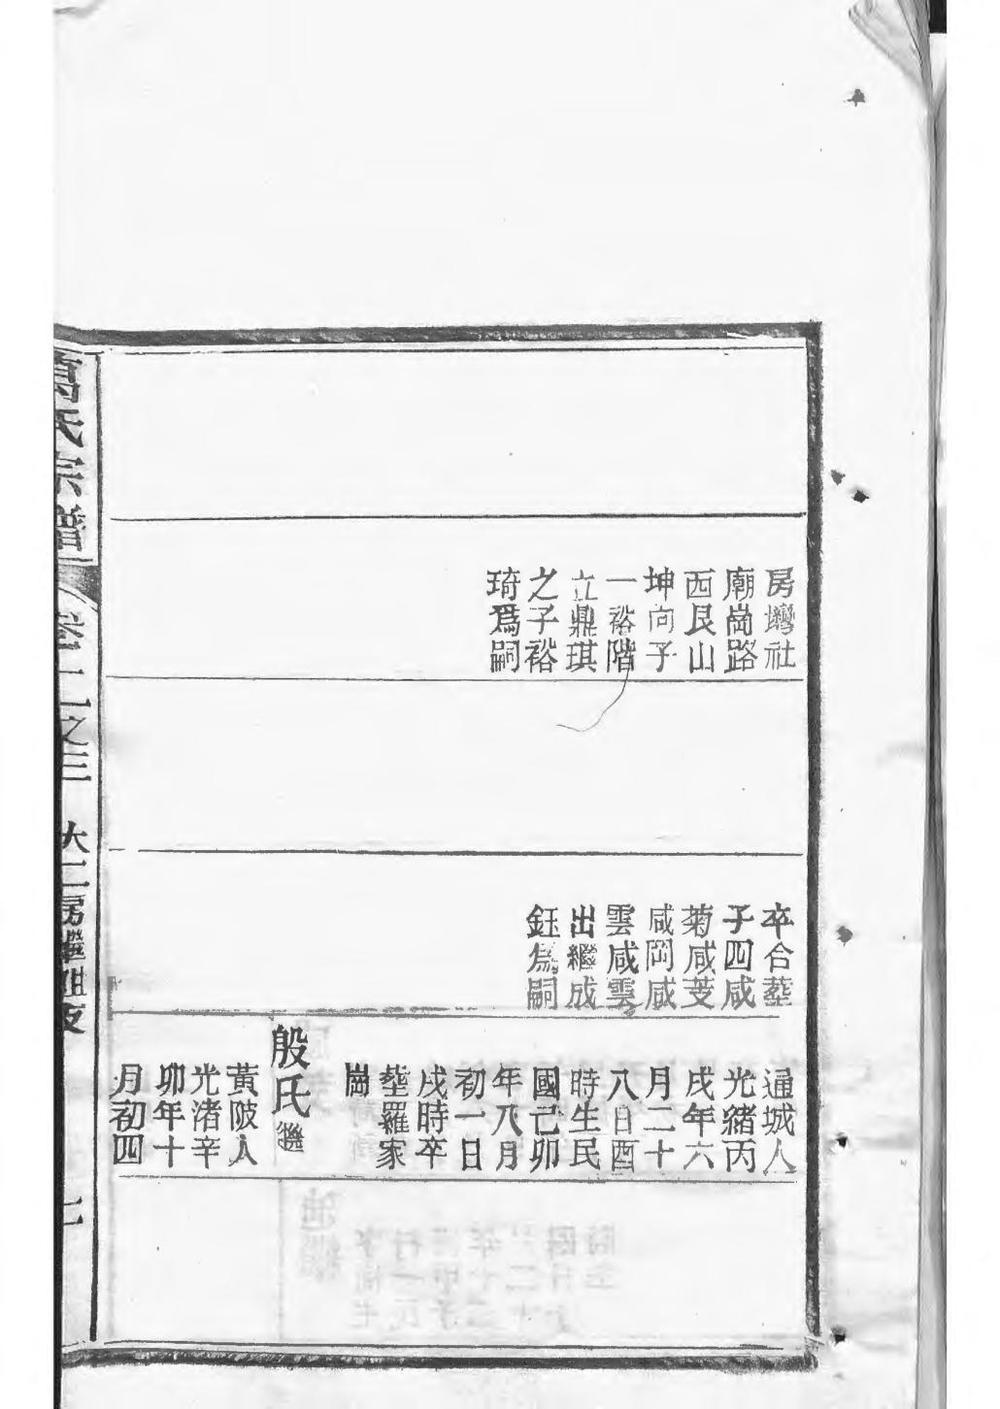 房灣社
廟崗路
西艮山
坤向子
一裕階
立鼎琪
之子裕
琦爲嗣
卒合塟
子四咸
菊咸芰
咸岡咸
雲咸雲
出繼成
鈺爲嗣
通城人
光緒丙
戌年六
月二十
八日酉
時生民
國己卯
年八月
初一日
戌時卒
塟羅家
崗
殷氏
黃陂人
光渚辛
卯年十
月初四
氏宗譜
卷二之三
大二房繼祖支
七